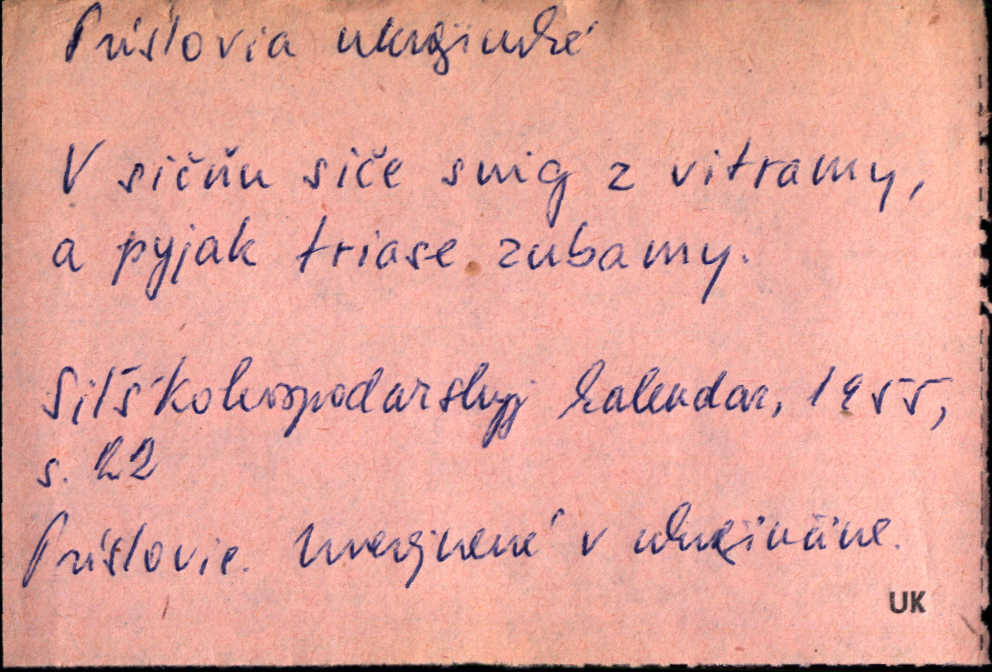 Príslovia ukrajinské
V sičňu siče snig z vitramy,
a pyjak triase zubamy.
Silśkohospodarskyj kalendar, 1955,
s. 22
Príslovie. Uverejnené v ukrajinčine.
UK